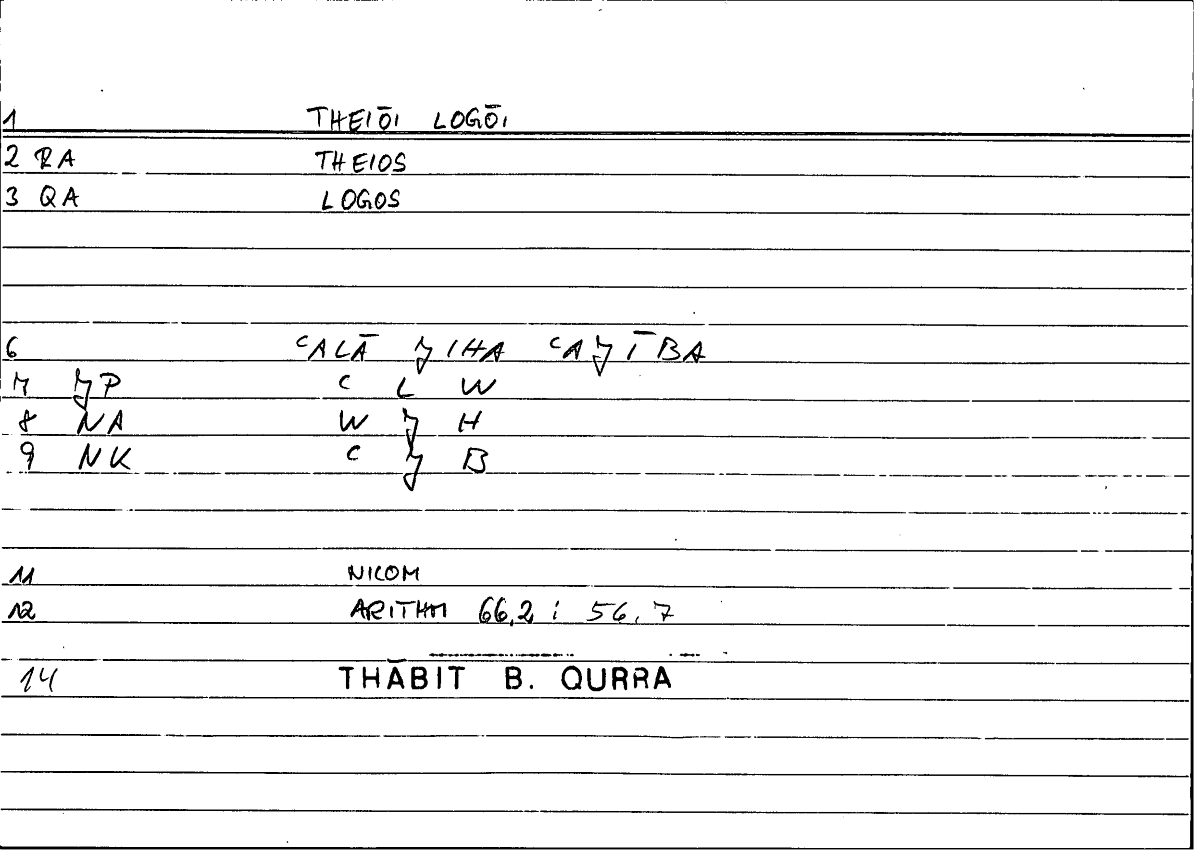 1 THEIŌI LOGŌI
2 RA THEIOS
3 QA LOGOS
6 ʿALĀ JIHA ʿAJĪBA
7 JP ʿ L W
8 NA W J H
9 NK ʿ J B
11 NICOM
12 ARITHM 66,2 ; 56,7
14 THĀBIT B. QURRA